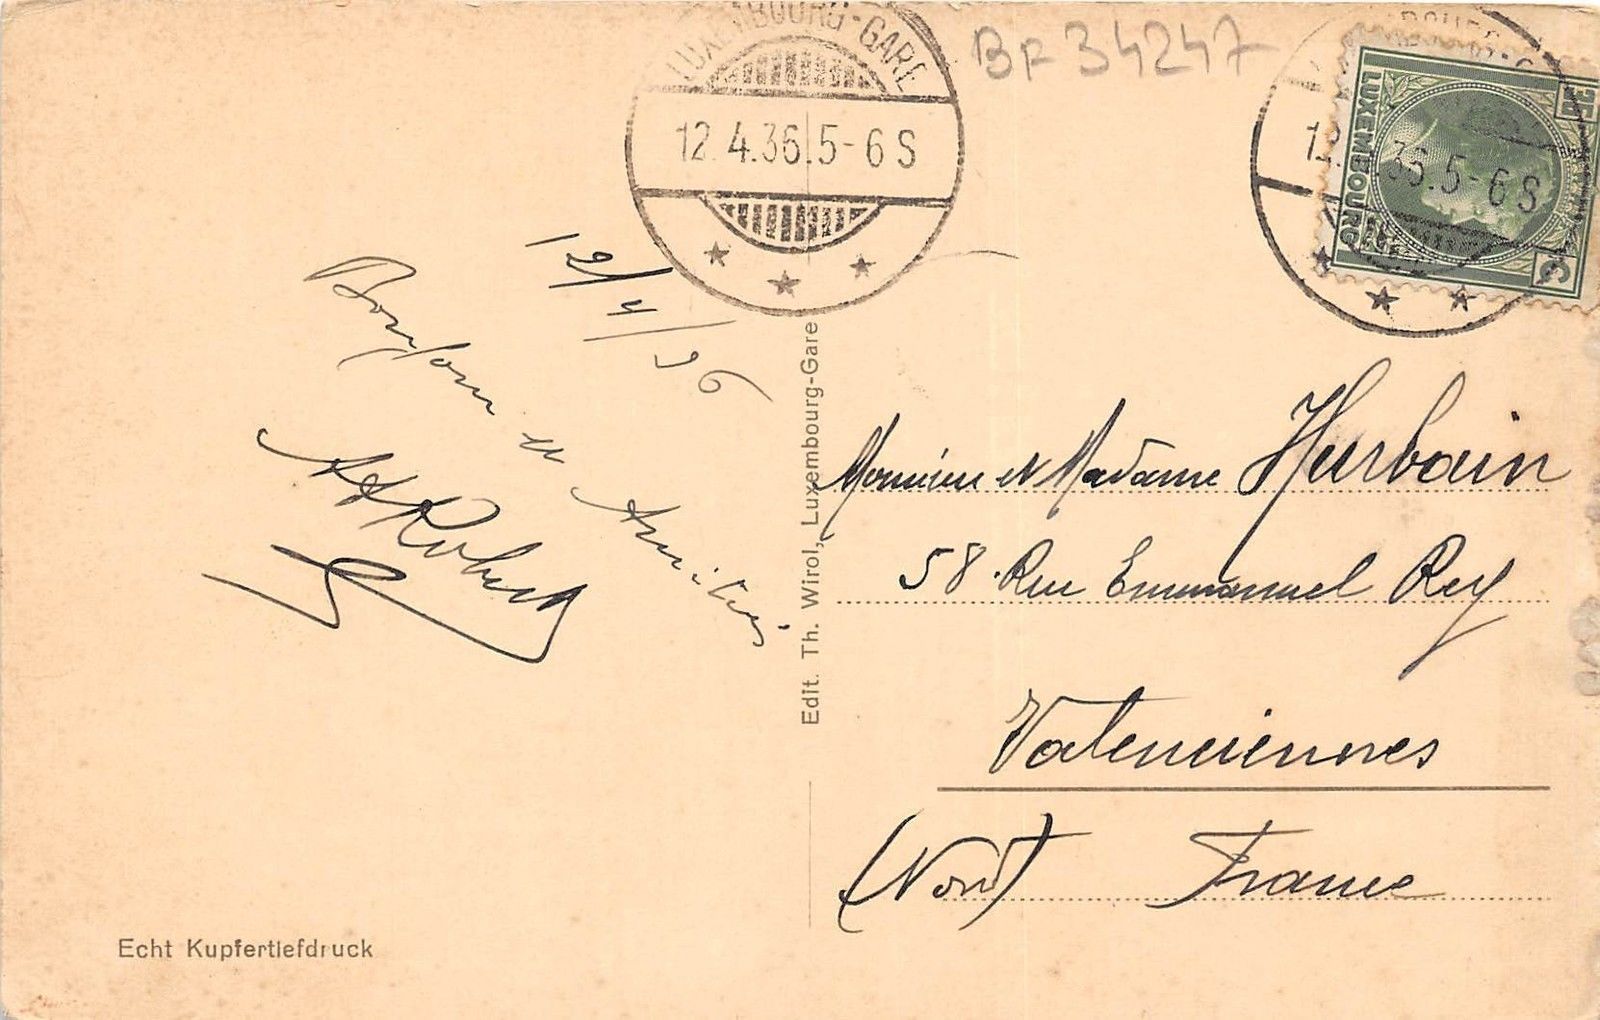 LUXEMBOURG-GARE
12.4.36.5-6 S
BF 34247
LUXEMBOURG
36.5-6 S
12/4/36
Bonjour et Amitiés
Edit. Th. Wirol, Luxembourg-Gare
Monsieur et Madame Hurbain
58 Rue Emmanuel Rey
Valenciennes
(Nord) France
Echt Kupfertiefdruck